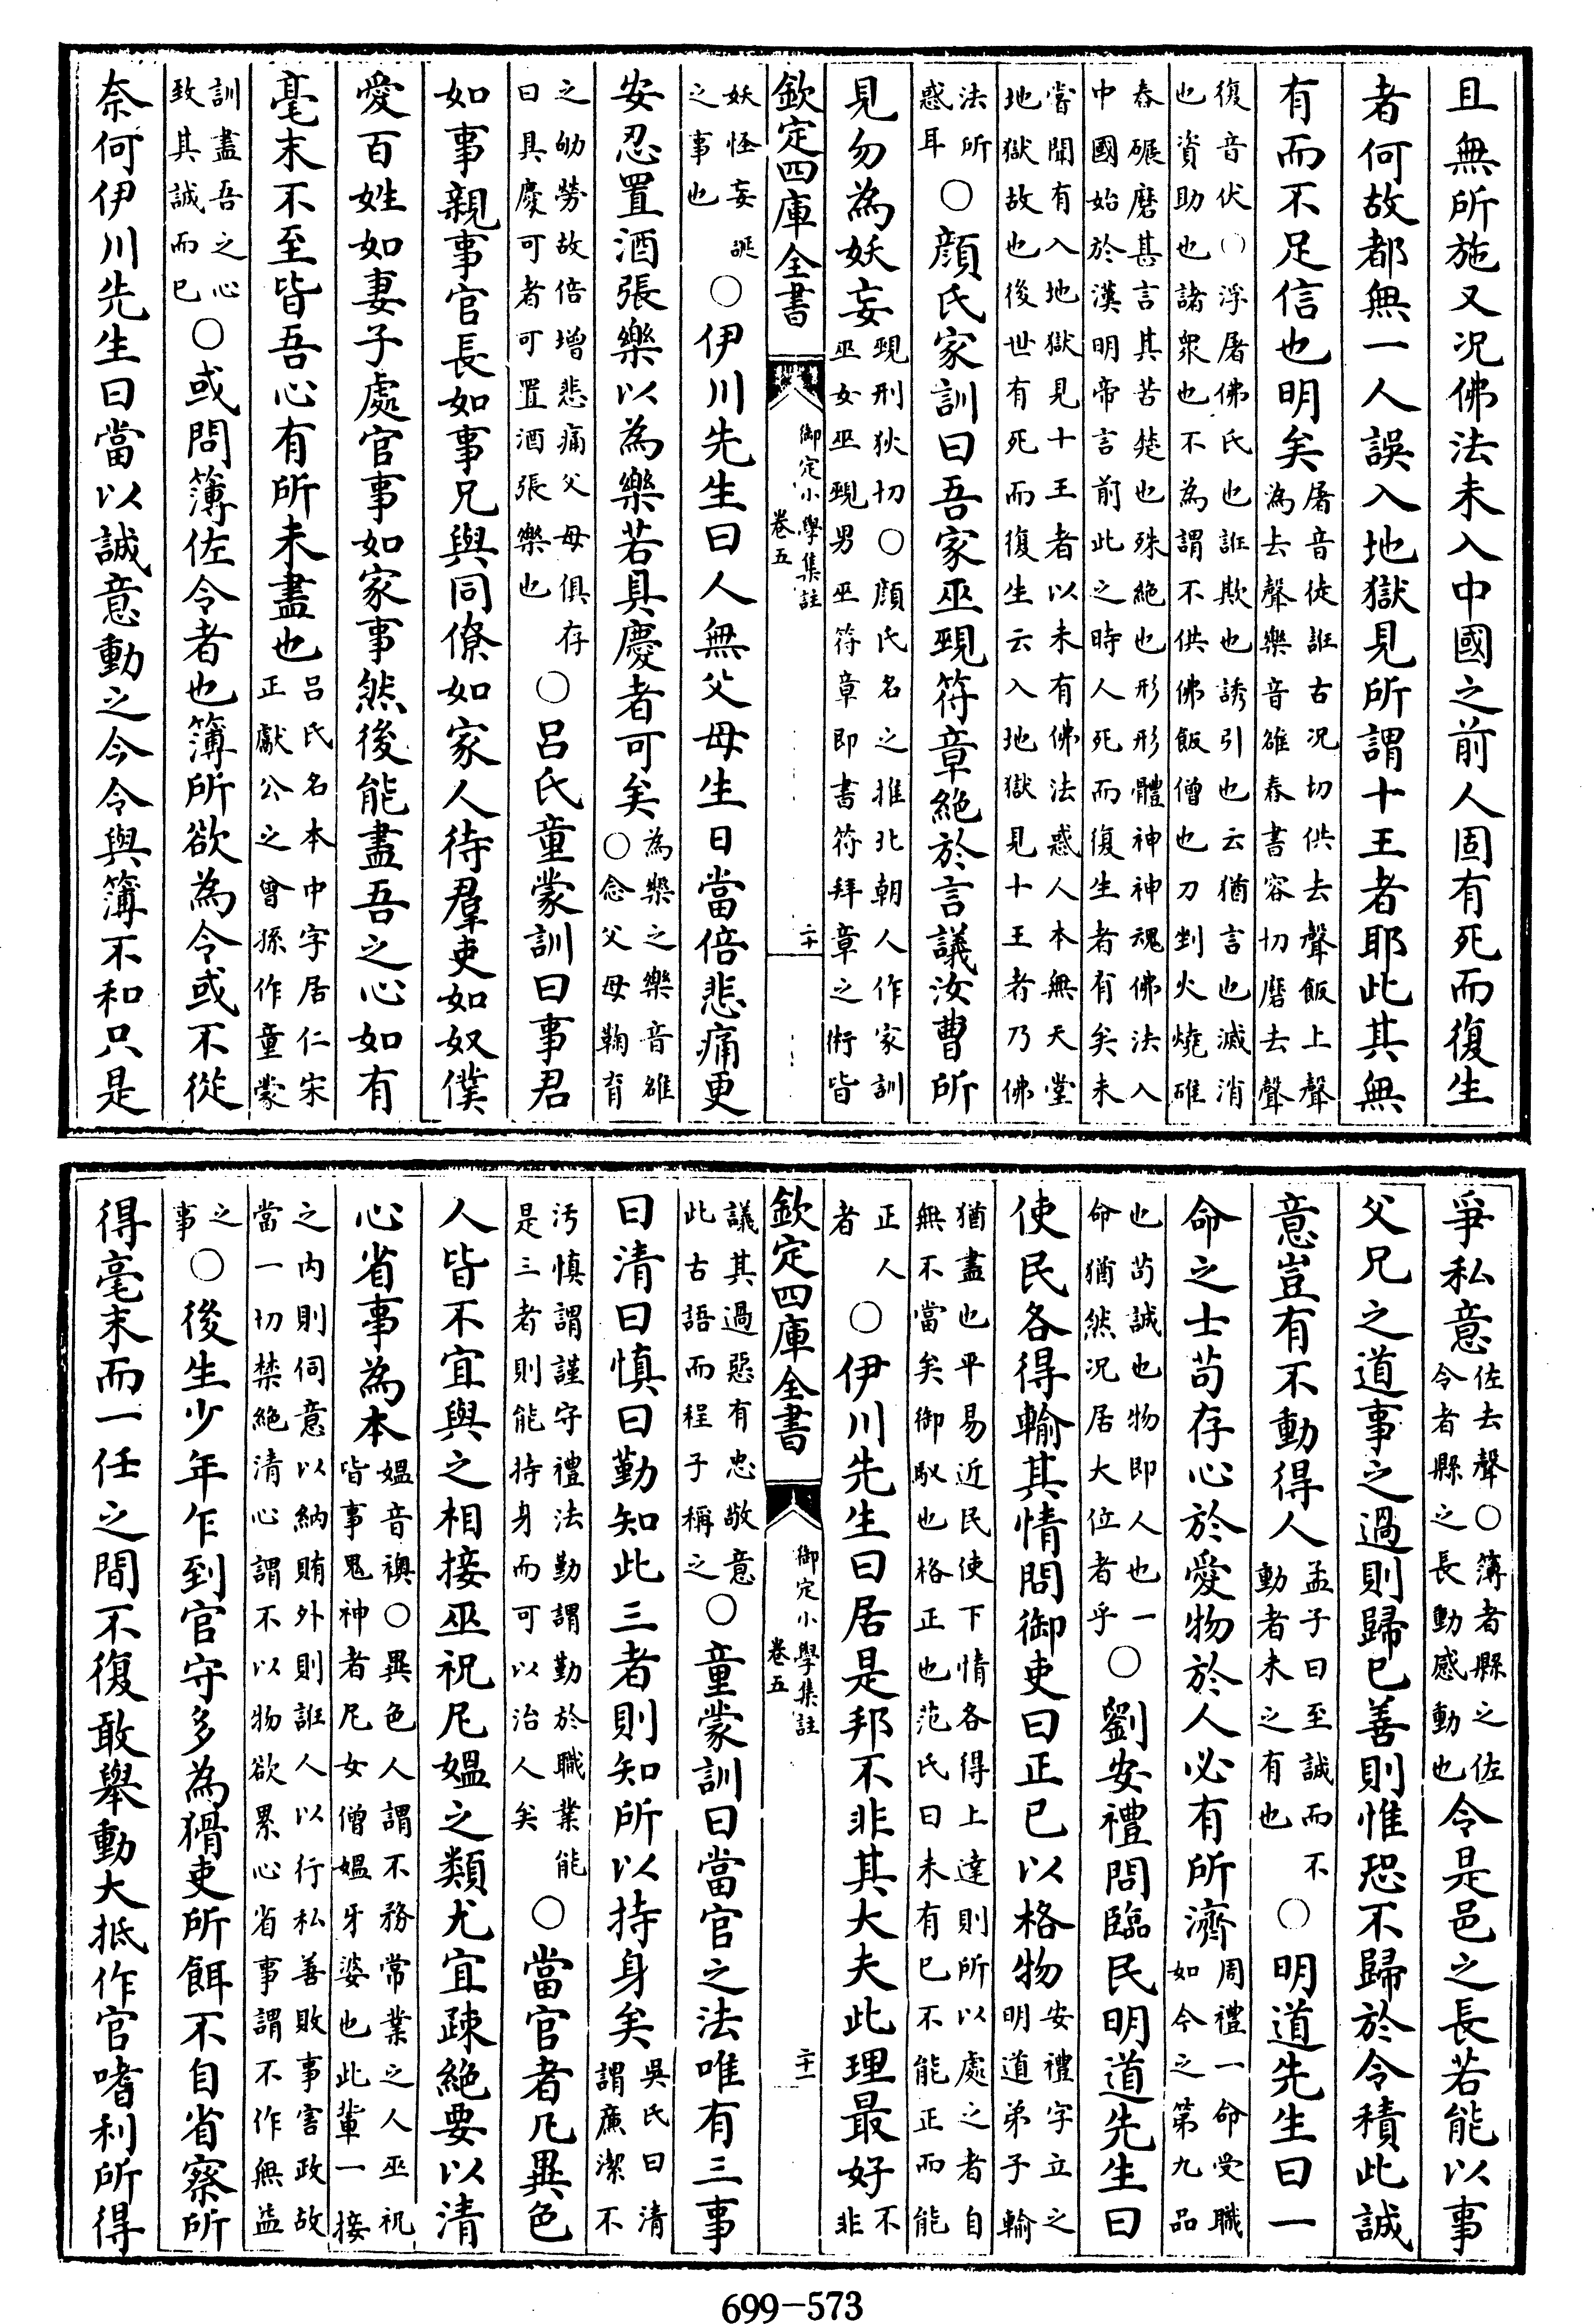 且無所施又況佛法未入中國之前人固有死而復生
者何故都無一人誤入地獄見所謂十王者耶此其無
有而不足信也明矣屠音徒誑古況切供去聲飯上聲
為去聲樂音雒舂書容切磨去聲
復音伏○浮屠佛氏也誑欺也誘引也云猶言也滅消
也資助也諸衆也不為謂不供佛飯僧也刀剉火燒碓
舂碾磨甚言其苦楚也殊絶也形形體神神魂佛法入
中國始於漢明帝言前此之時人死而復生者有矣未
嘗聞有入地獄見十王者以未有佛法惑人本無天堂
地獄故也後世有死而復生云入地獄見十王者乃佛
法所
惑耳○顔氏家訓曰吾家巫覡符章絶於言議汝曹所
見勿為妖妄覡刑狄切○顔氏名之推北朝人作家訓
巫女巫覡男巫符章即書符拜章之術皆
欽定四庫全書
御定小學集註
卷五
二十
妖怪妄誕
之事也○伊川先生曰人無父母生日當倍悲痛更
安忍置酒張樂以為樂若具慶者可矣為樂之樂音雒
○念父母鞠育
之劬勞故倍增悲痛父母俱存
曰具慶可者可置酒張樂也○呂氏童蒙訓曰事君
如事親事官長如事兄與同僚如家人待羣吏如奴僕
愛百姓如妻子處官事如家事然後能盡吾之心如有
毫末不至皆吾心有所未盡也呂氏名本中字居仁宋
正獻公之曾孫作童蒙
訓盡吾之心
致其誠而已○或問簿佐令者也簿所欲為令或不從
奈何伊川先生曰當以誠意動之今令與簿不和只是
爭私意佐去聲○簿者縣之佐
令者縣之長動感動也令是邑之長若能以事
父兄之道事之過則歸已善則惟恐不歸於令積此誠
意豈有不動得人孟子曰至誠而不
動者未之有也○明道先生曰一
命之士苟存心於愛物於人必有所濟周禮一命受職
如今之第九品
也苟誠也物即人也一
命猶然況居大位者乎○劉安禮問臨民明道先生曰
使民各得輸其情問御吏曰正已以格物安禮字立之
明道弟子輸
猶盡也平易近民使下情各得上達則所以處之者自
無不當矣御馭也格正也范氏曰未有已不能正而能
正人
者○伊川先生曰居是邦不非其大夫此理最好不
非
欽定四庫全書
御定小學集註
卷五
二十一
議其過惡有忠敬意
此古語而程子稱之○童蒙訓曰當官之法唯有三事
曰清曰慎曰勤知此三者則知所以持身矣吳氏曰清
謂㢘潔不
汚慎謂謹守禮法勤謂勤於職業能
是三者則能持身而可以治人矣○當官者凡異色
人皆不宜與之相接巫祝尼媼之類尤宜疎絶要以清
心省事為本媼音襖○異色人謂不務常業之人巫祝
皆事鬼神者尼女僧媼牙婆也此輩一接
之內則伺意以納賄外則誑人以行私善敗事害政故
當一切禁絶清心謂不以物欲累心省事謂不作無益
之
事○後生少年乍到官守多為猾吏所餌不自省察所
得毫末而一任之間不復敢舉動大抵作官嗜利所得
699-573